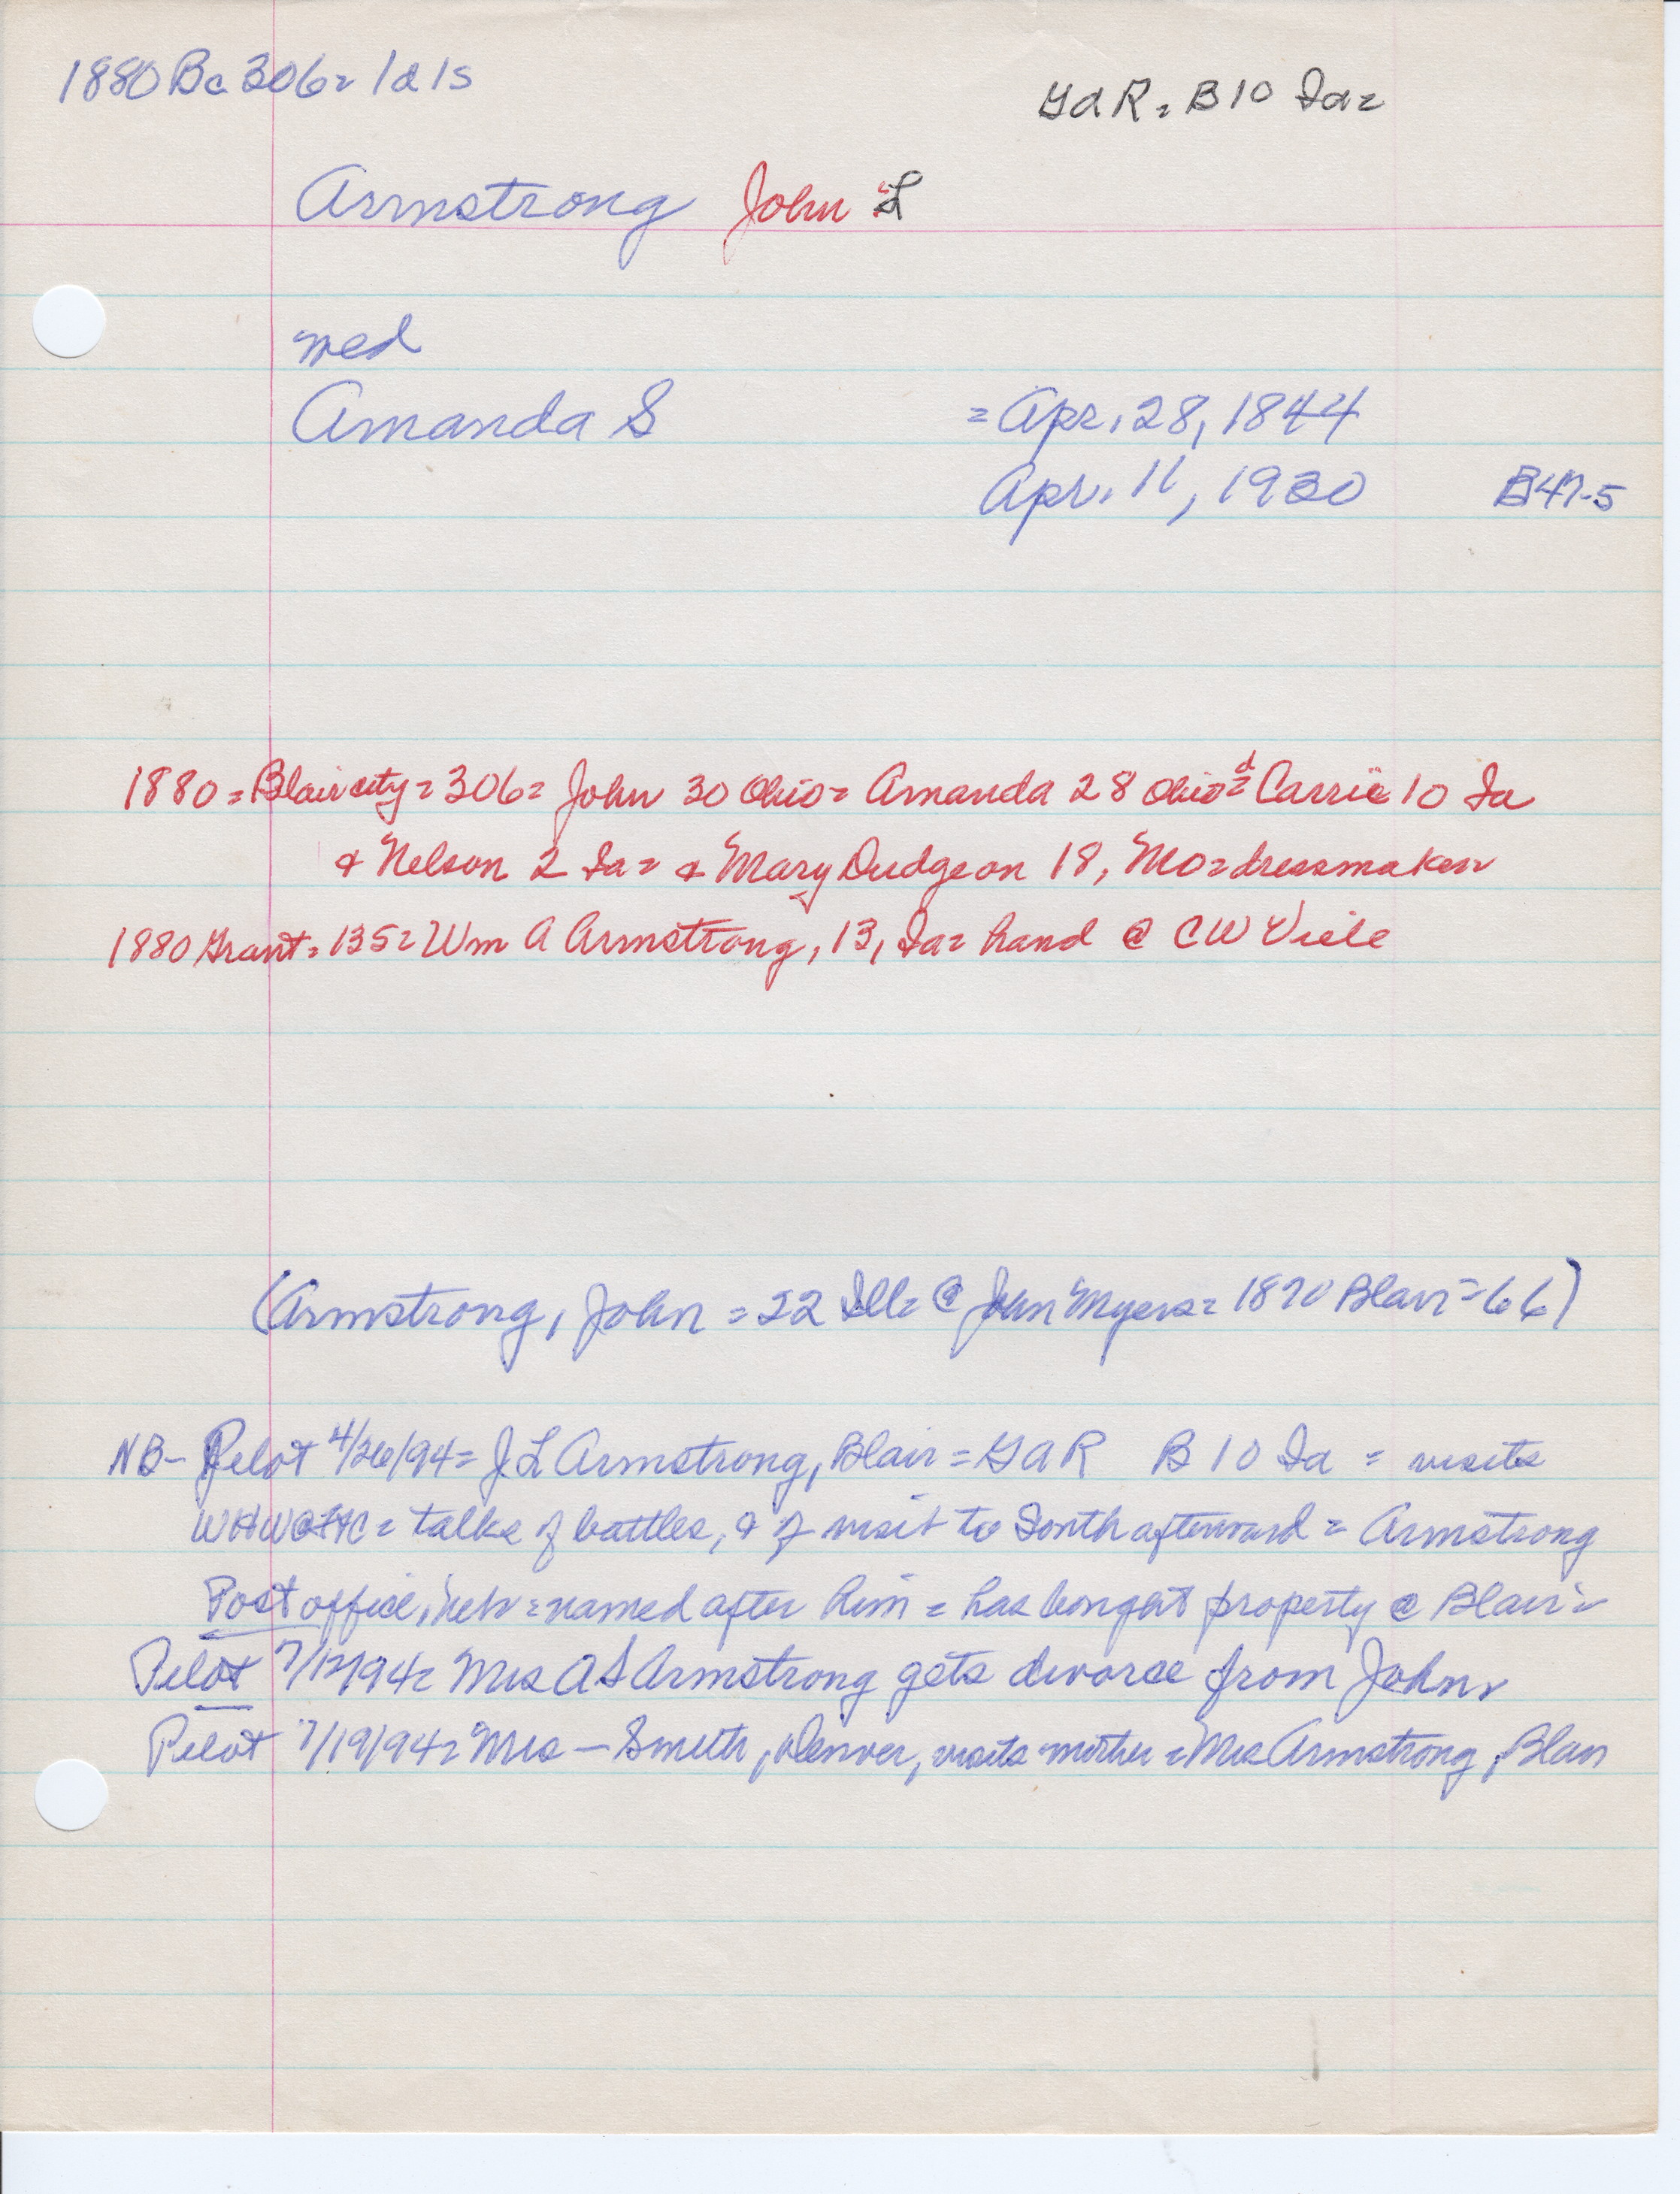 1880 Bc 306 = 1d 1s
GaR = B 10 Ia =
Armstrong John L
med
Amanda S = Apr. 28, 1844
Apr. 11, 1930 B47-5
1880 = Blair city = 306 = John 30 Ohio = Amanda 28 Ohio = d Carrie 10 Ia
& Nelson 2 Ia = & Mary Dudgeon 18, Mo = dressmaker
1880 Grant = 135 = Wm A Armstrong, 13, Ia = hand @ C W Viele
(Armstrong, John = 22 Ill = @ John Myers = 1870 Blair = 66)
NB - Pilot 4/26/94 = J L Armstrong, Blair = GaR B 10 Ia = visits
= talks of battles, & of visit to South afterward = Armstrong
Post office, Neb = named after him = has bought property @ Blair =
Pilot 7/12/94 = Mrs A S Armstrong gets divorce from John
Pilot 7/19/94 = Mrs — Smith, Denver, visits mother = Mrs Armstrong, Blair